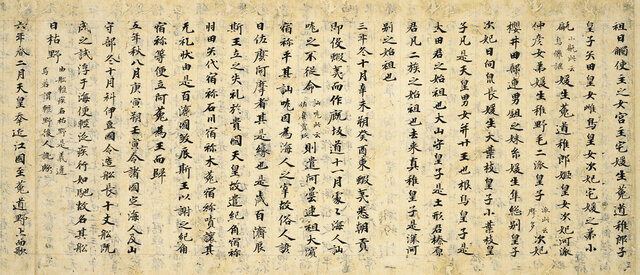 祖日觸使主之女宮主宅媛生菟道稚郎子
皇子矢田皇女雌鳥皇女次妃宅媛之弟小
甂媛生菟道稚郎姬皇女次妃河派
仲彥女弟媛生稚野毛二派皇子 派此云摩多 次妃
櫻井田部連男鉏之妹糸媛生隼總別皇子
次妃日向泉長媛生大葉枝皇子小葉枝皇
子凡是天皇男女并廿王也根鳥皇子是
大田君之始祖也大山守皇子是土形君榛原
君凡二族之始祖也去來真稚皇子是深河
別之始祖也
三年冬十月辛未朔癸酉東蝦夷悉朝貢
即役蝦夷而作厩坂道十一月處々海人訕
哤之不從命 訕哤此云佐麼賣玖 則遣阿曇連祖大濱
宿祢平其訕哤因為海人之宰故俗人諺
曰佐麼阿摩者其是緣也是歲百濟辰
斯王立之失礼於貴國天皇故遣紀角宿祢
羽田矢代宿祢石川宿祢木菟宿祢嘖讓其
无礼狀由是百濟國殺辰斯王以謝之紀角
宿祢等便立阿花為王而歸
五年秋八月庚寅朔壬寅令諸國定海人及山
守部冬十月科伊豆國令造船長十丈船既
成之試浮于海便輕泛疾行如馳故名其船
曰枯野 由船輕疾名枯野是義違焉若謂輕野後人訛歟
六年春二月天皇幸近江國至菟道野上而歌